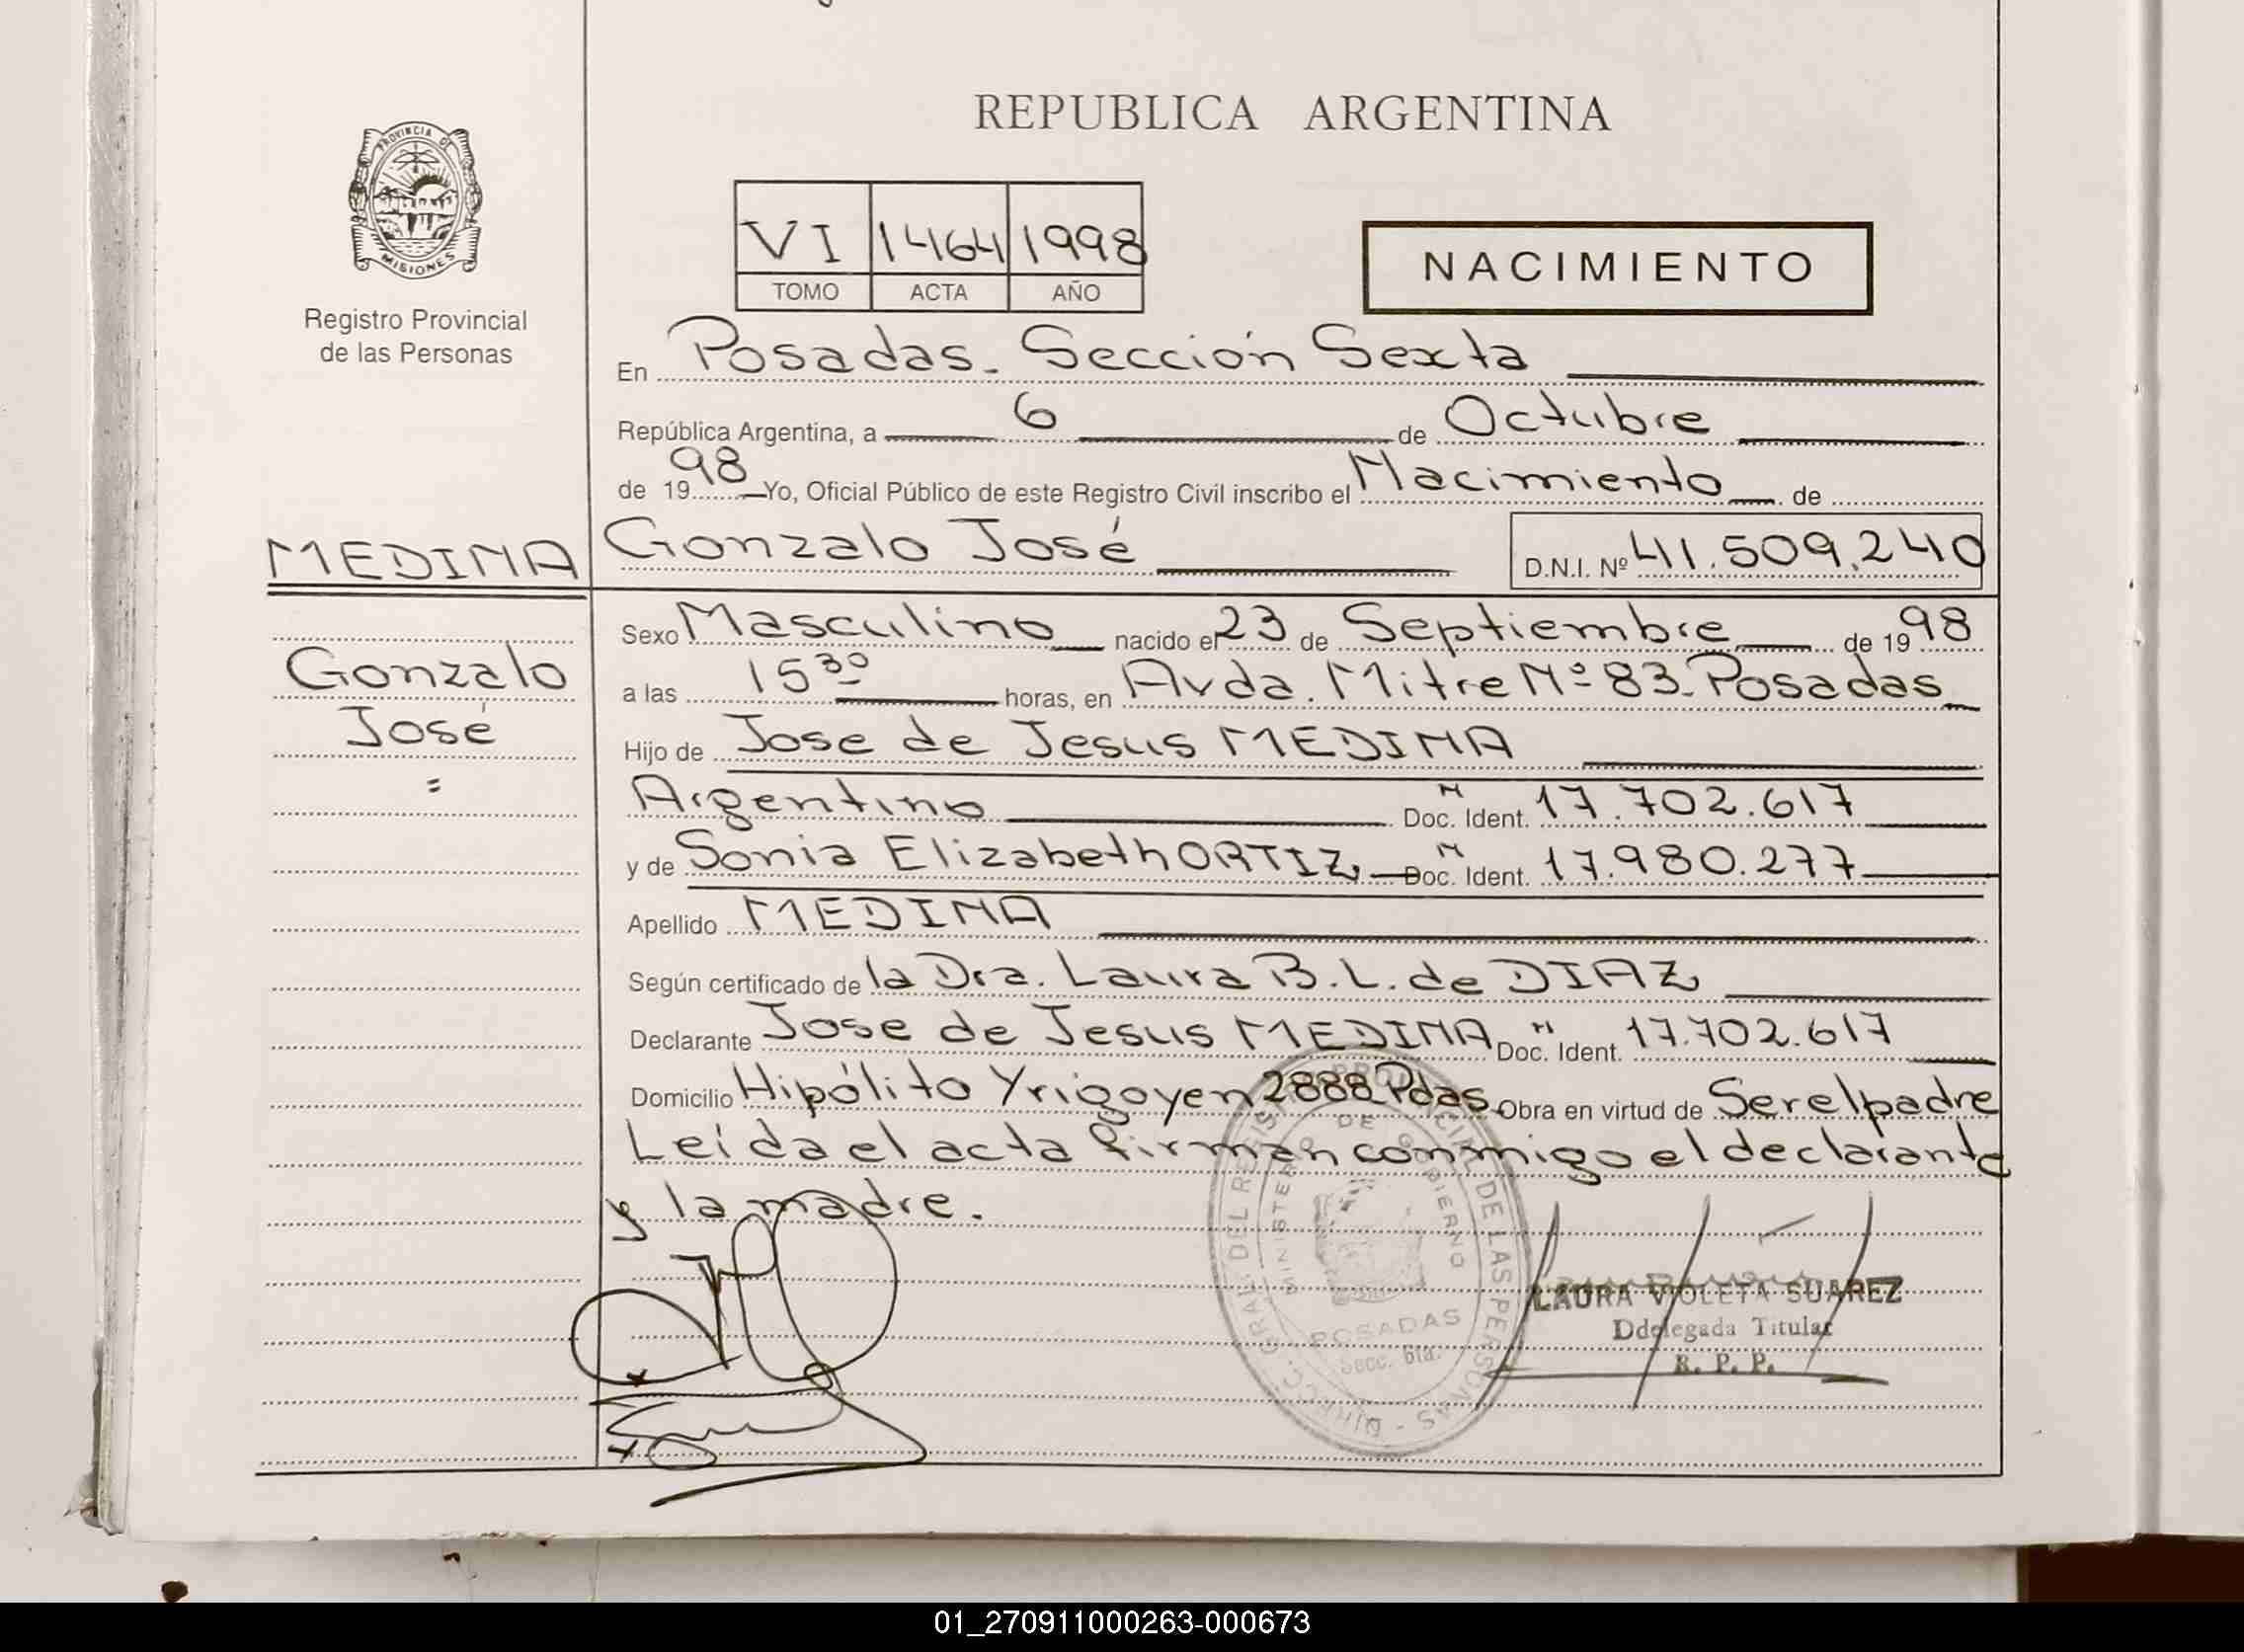 REPUBLICA ARGENTINA
PROVINCIA DE
MISIONES
Registro Provincial
de las Personas
VI 1464 1998
TOMO ACTA AÑO
NACIMIENTO
En Posadas. Sección Sexta
República Argentina, a 6 de Octubre
de 1998 Yo, Oficial Público de este Registro Civil inscribo el Nacimiento de
MEDINA Gonzalo José D.N.I. Nº 41.509.240
Sexo Masculino nacido el 23 de Septiembre de 1998
Gonzalo
a las 15 30 horas, en Avda. Mitre Nº 83. Posadas
José
Hijo de Jose de Jesus MEDINA
=
Argentino Doc. N Ident. 17.702.617
y de Sonia Elizabeth ORTIZ Doc. N Ident. 17.980.277
Apellido MEDINA
Según certificado de la Dra. Laura B. L. de DIAZ
Declarante Jose de Jesus MEDINA Doc. N Ident. 17.702.617
Domicilio Hipólito Yrigoyen 2888 Pdas. Obra en virtud de Ser el padre
Leída el acta firman conmigo el declarante
y la madre.
DEL REGISTRO PROVINCIAL DE LAS PERSONAS
MINISTERIO DE GOBIERNO
POSADAS
Secc. 6ta.
LAURA VIOLETA SUAREZ
Ddelegada Titular
R. P. P.
01_270911000263-000673